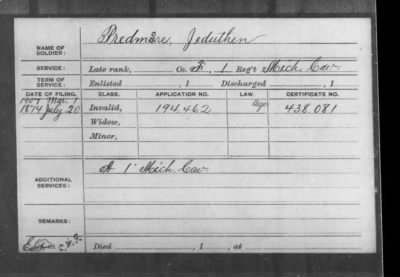 NAME OF SOLDIER: Predmore, Jeduthen
SERVICE: Late rank, Co. F, 1 Reg't Mich. Cav.
TERM OF SERVICE: Enlisted , 1 Discharged , 1
DATE OF FILING. CLASS. APPLICATION NO. LAW. CERTIFICATE NO.
1907 Mar. 1 Age
1874 July 20 Invalid, 194.462 438.081
Widow,
Minor,
ADDITIONAL SERVICES: A 1" Mich. Cav.
REMARKS:
Died , 1 , at